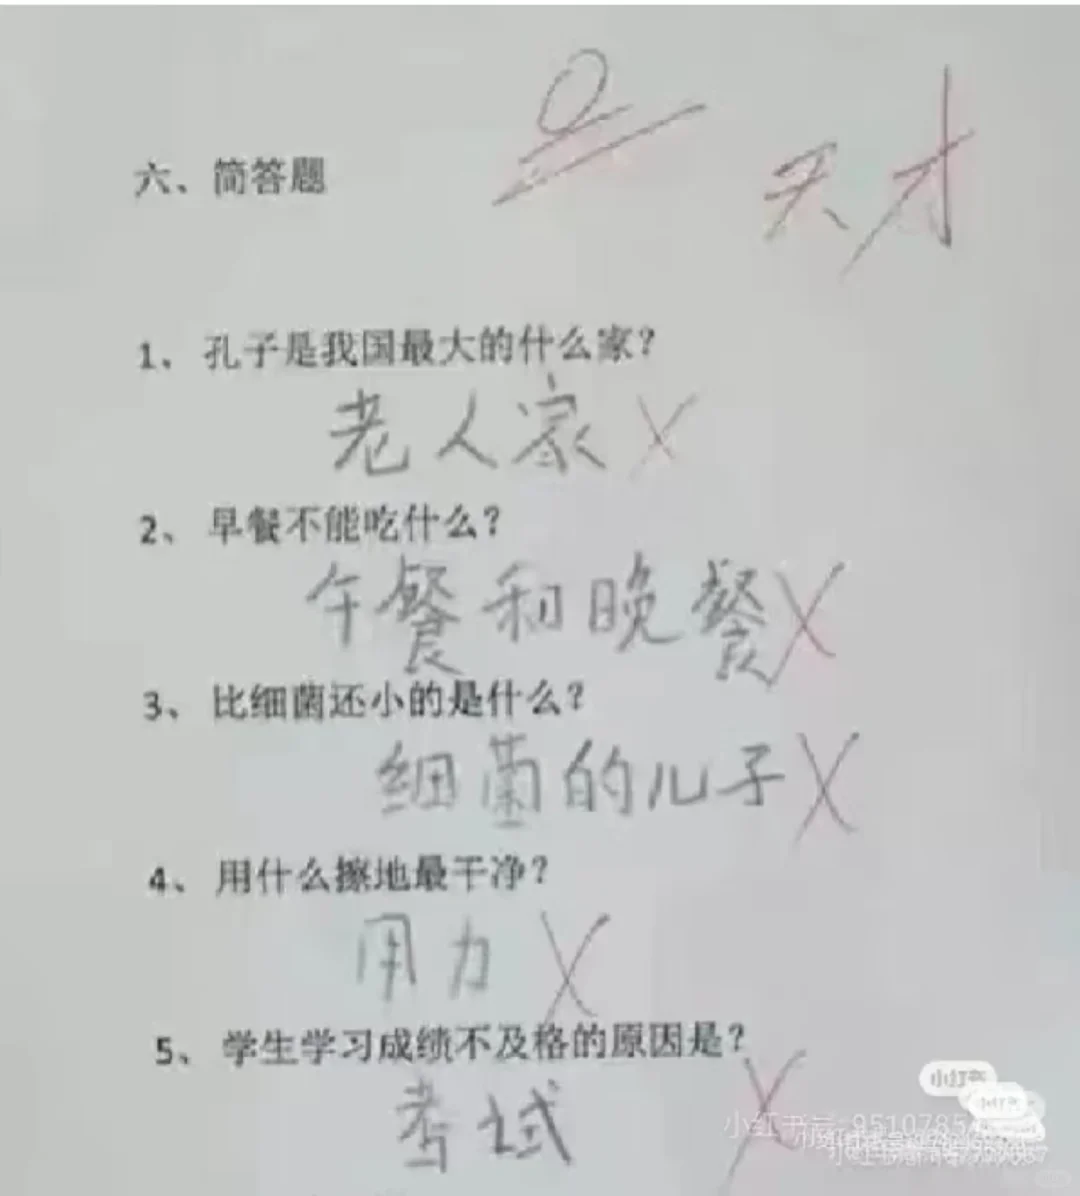 0
天才
六、简答题
1、孔子是我国最大的什么家?
老人家
2、早餐不能吃什么?
午餐和晚餐
3、比细菌还小的是什么?
细菌的儿子
4、用什么擦地最干净?
用力
5、学生学习成绩不及格的原因是?
考试